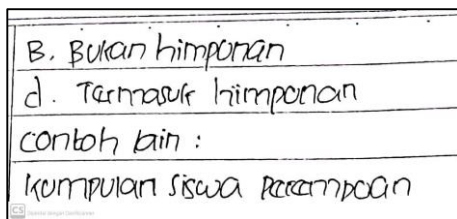 B. Bukan himponan
d. Termasuk himponan
contoh lain :
kumpulan siswa perempoan
CS Dipindai dengan CamScanner